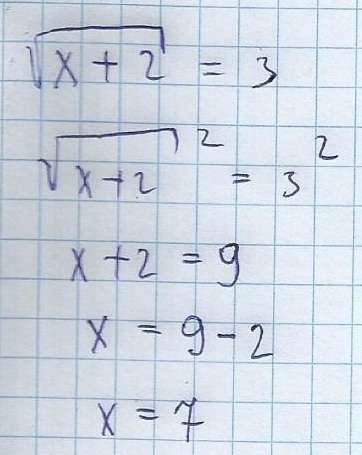 √(x + 2) = 3
√(x + 2)² = 3²
x + 2 = 9
x = 9 - 2
x = 7